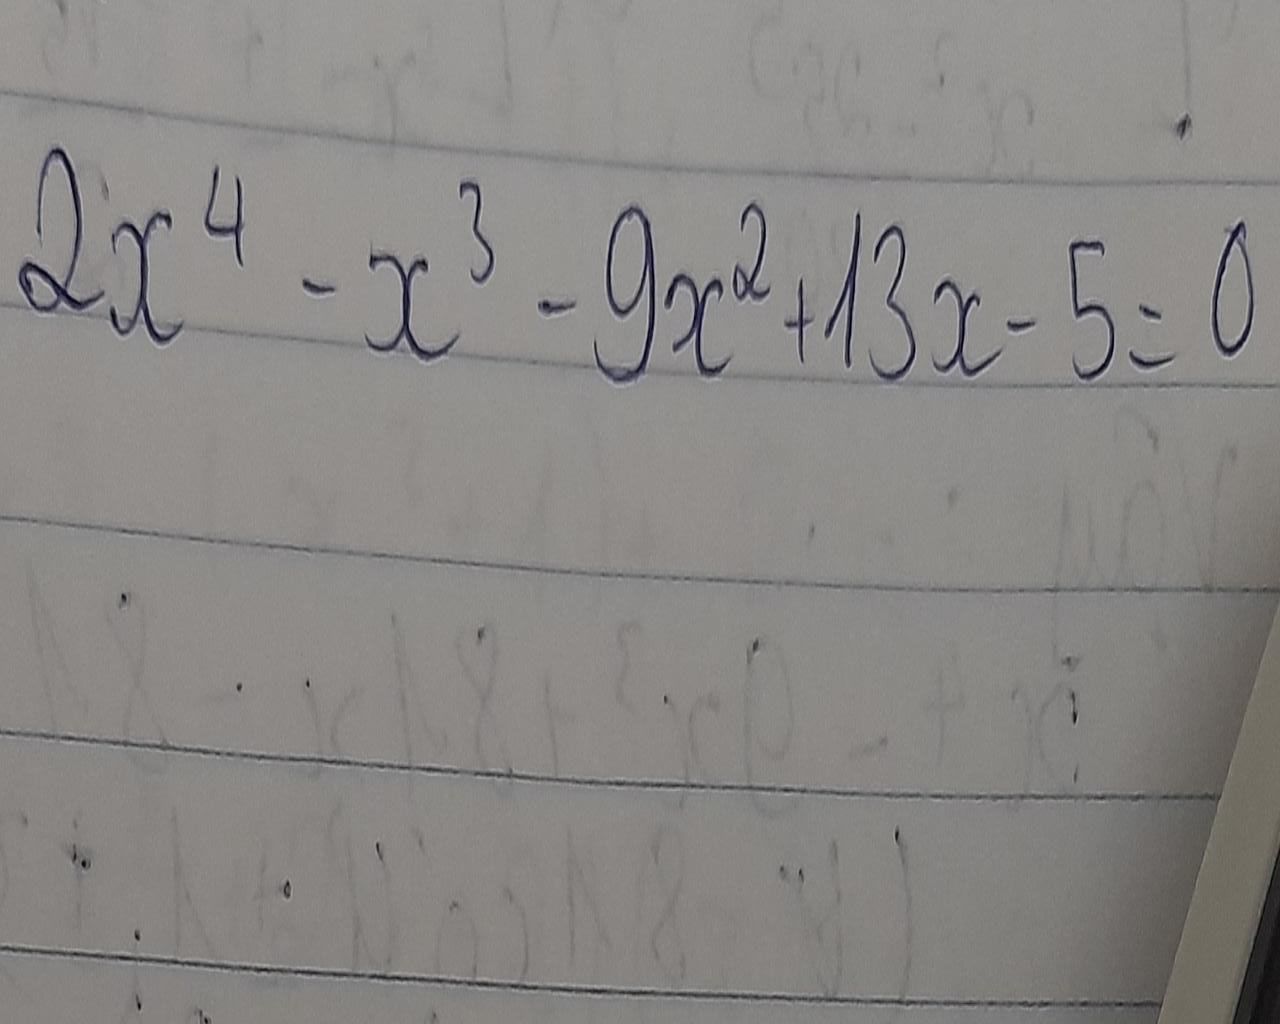 2x⁴ - x³ - 9x² + 13x - 5 = 0